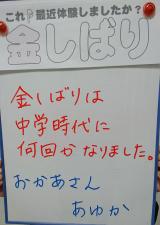 これ最近体験しましたか?
金しばり
金しばりは
中学時代に
何回かなりました。
おかあさん
あゆか